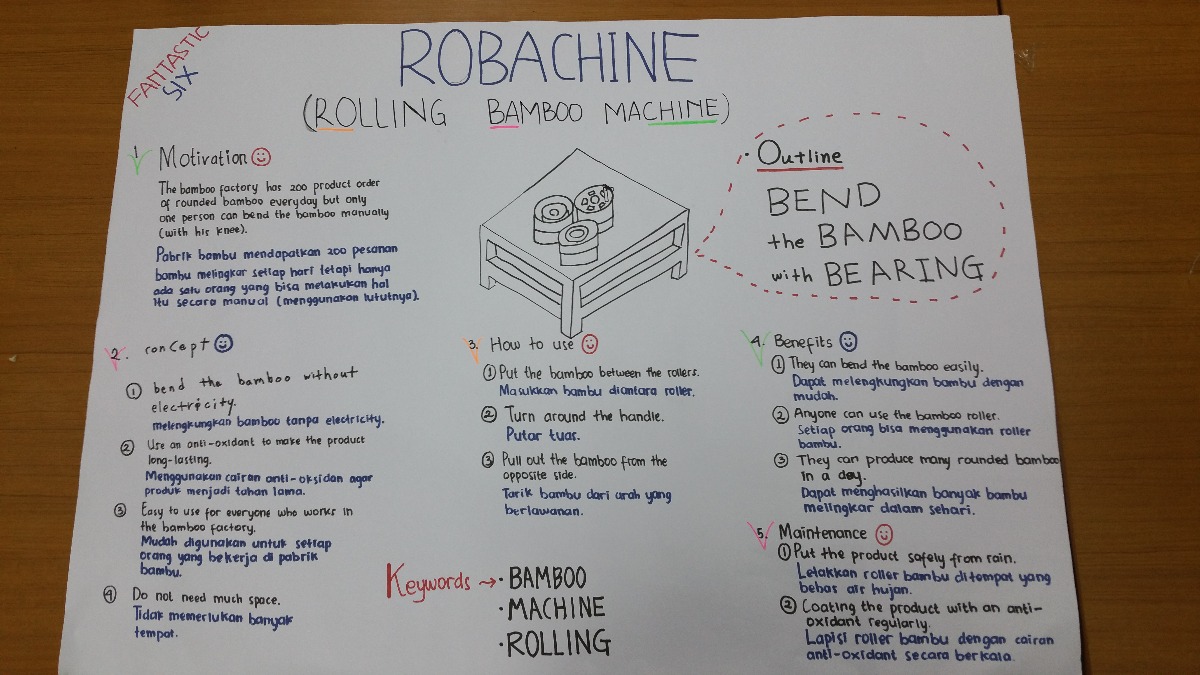 FANTASTIC
SIX
ROBACHINE
(ROLLING BAMBOO MACHINE)
1. Motivation
The bamboo factory has 200 product order
of rounded bamboo everyday but only
one person can bend the bamboo manually
(with his knee).
Pabrik bambu mendapatkan 200 pesanan
bambu melingkar setiap hari tetapi hanya
ada satu orang yang bisa melakukan hal
itu secara manual (menggunakan lututnya).
• Outline
BEND
the BAMBOO
with BEARING
2. concept
① bend the bamboo without
electricity.
melengkungkan bamboo tanpa electricity.
② Use an anti-oxidant to make the product
long-lasting.
Menggunakan cairan anti-oksidan agar
produk menjadi tahan lama.
③ Easy to use for everyone who works in
the bamboo factory.
Mudah digunakan untuk setiap
orang yang bekerja di pabrik
bambu.
④ Do not need much space.
Tidak memerlukan banyak
tempat.
3. How to use
① Put the bamboo between the rollers.
Masukkan bambu diantara roller.
② Turn around the handle.
Putar tuar.
③ Pull out the bamboo from the
opposite side.
Tarik bambu dari arah yang
berlawanan.
Keywords → • BAMBOO
• MACHINE
• ROLLING
4. Benefits
① They can bend the bamboo easily.
Dapat melengkungkan bambu dengan
mudah.
② Anyone can use the bamboo roller.
Setiap orang bisa menggunakan roller
bambu.
③ They can produce many rounded bamboo
in a day.
Dapat menghasilkan banyak bambu
melingkar dalam sehari.
5. Maintenance
① Put the product safely from rain.
Letakkan roller bambu ditempat yang
bebas air hujan.
② Coating the product with an anti-
oxidant regularly.
Lapisi roller bambu dengan cairan
anti-oxidant secara berkala.